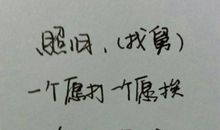 照旧，(找舅)
一个愿打一个愿挨